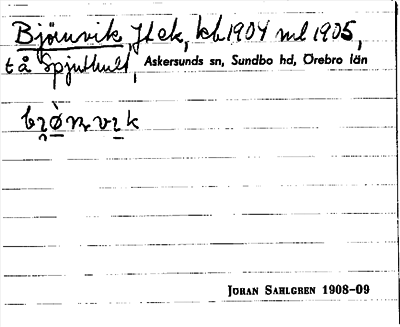 Björnvik, Jl ek, kb 1904 ml 1905,
t å Spjuthult, Askersunds sn, Sundbo hd, Örebro län
JOHAN SAHLGREN 1908–09